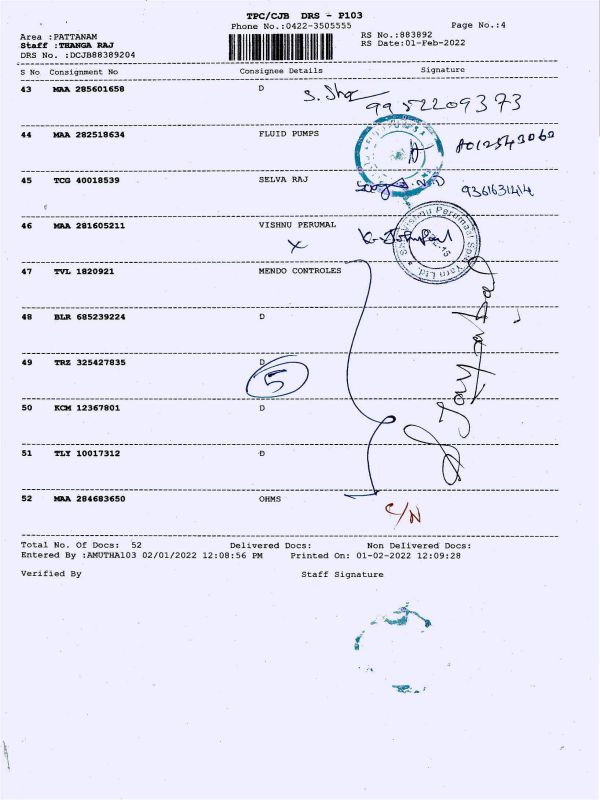 TPC/CJB DRS - P103
Phone No.:0422-3505555 Page No.:4
Area :PATTANAM RS No.:883892
Staff :THANGA RAJ RS Date:01-Feb-2022
DRS No. :DCJB88389204
S No Consignment No Consignee Details Signature
43 MAA 285601658 D
9952209373
44 MAA 282518634 FLUID PUMPS
8012543060
45 TCG 40018539 SELVA RAJ
9361631414
46 MAA 281605211 VISHNU PERUMAL
x
47 TVL 1820921 MENDO CONTROLES
48 BLR 685239224 D
49 TRZ 325427835 D
5
50 KCM 12367801 D
51 TLY 10017312 D
52 MAA 284683650 OHMS
C/N
Total No. Of Docs: 52 Delivered Docs: Non Delivered Docs:
Entered By :AMUTHA103 02/01/2022 12:08:56 PM Printed On: 01-02-2022 12:09:28
Verified By Staff Signature